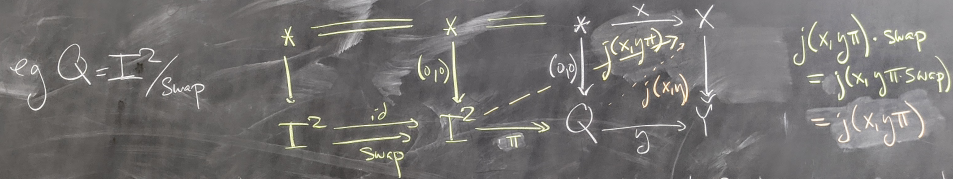 eg Q = I²/swap
* * * x X
(0,0) (0,0) j(x,yπ)
j(x,y)
I² id I² π Q y Y
swap
j(x,yπ)·swap
= j(x,yπ·swap)
= j(x,yπ)